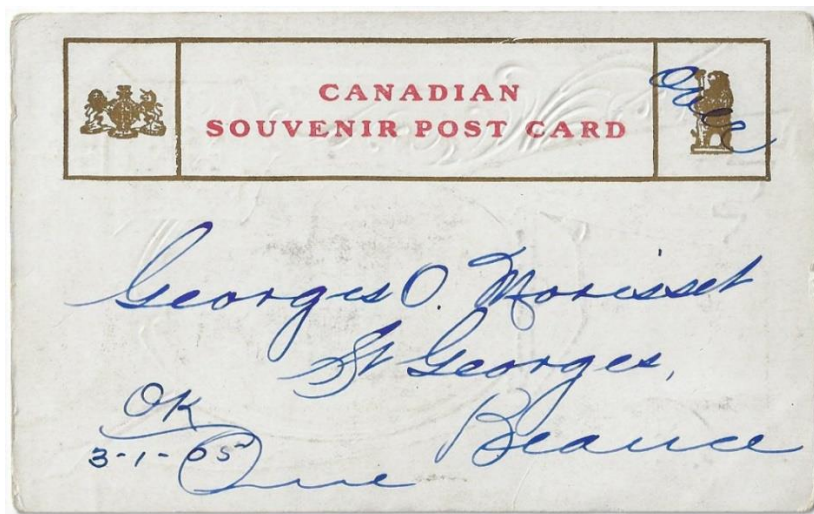 CANADIAN
SOUVENIR POST CARD
Georges O. Morisset
St Georges,
Beauce
OK
3-1-05
Que